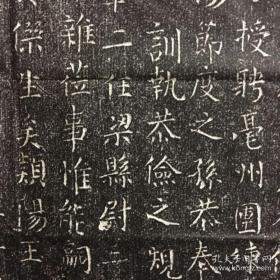 授聘亳州團
節度之孫恭奉
訓執恭儉之規
二任梁縣尉
雖莅事惟能嗣
傑生矣潁陽王